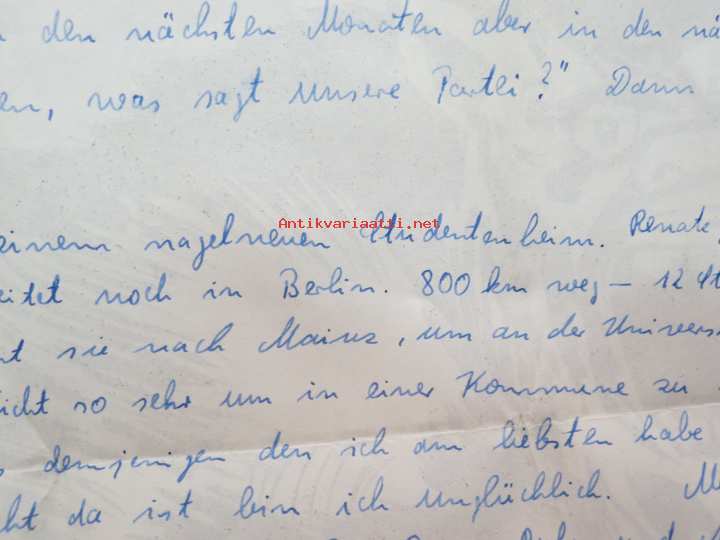 den nächsten Monaten aber in den nä
en, was sagt unsere Partei?" Dann
Antikvariaatti.net
einem nagelneuen Studentenheim. Renate
eitet noch in Berlin. 800 km weg – 12 St
nt sie nach Mainz, um an der Univers
icht so sehr um in einer Kommune zu
s demjenigen den ich am liebsten habe
cht da ist bin ich unglücklich. M